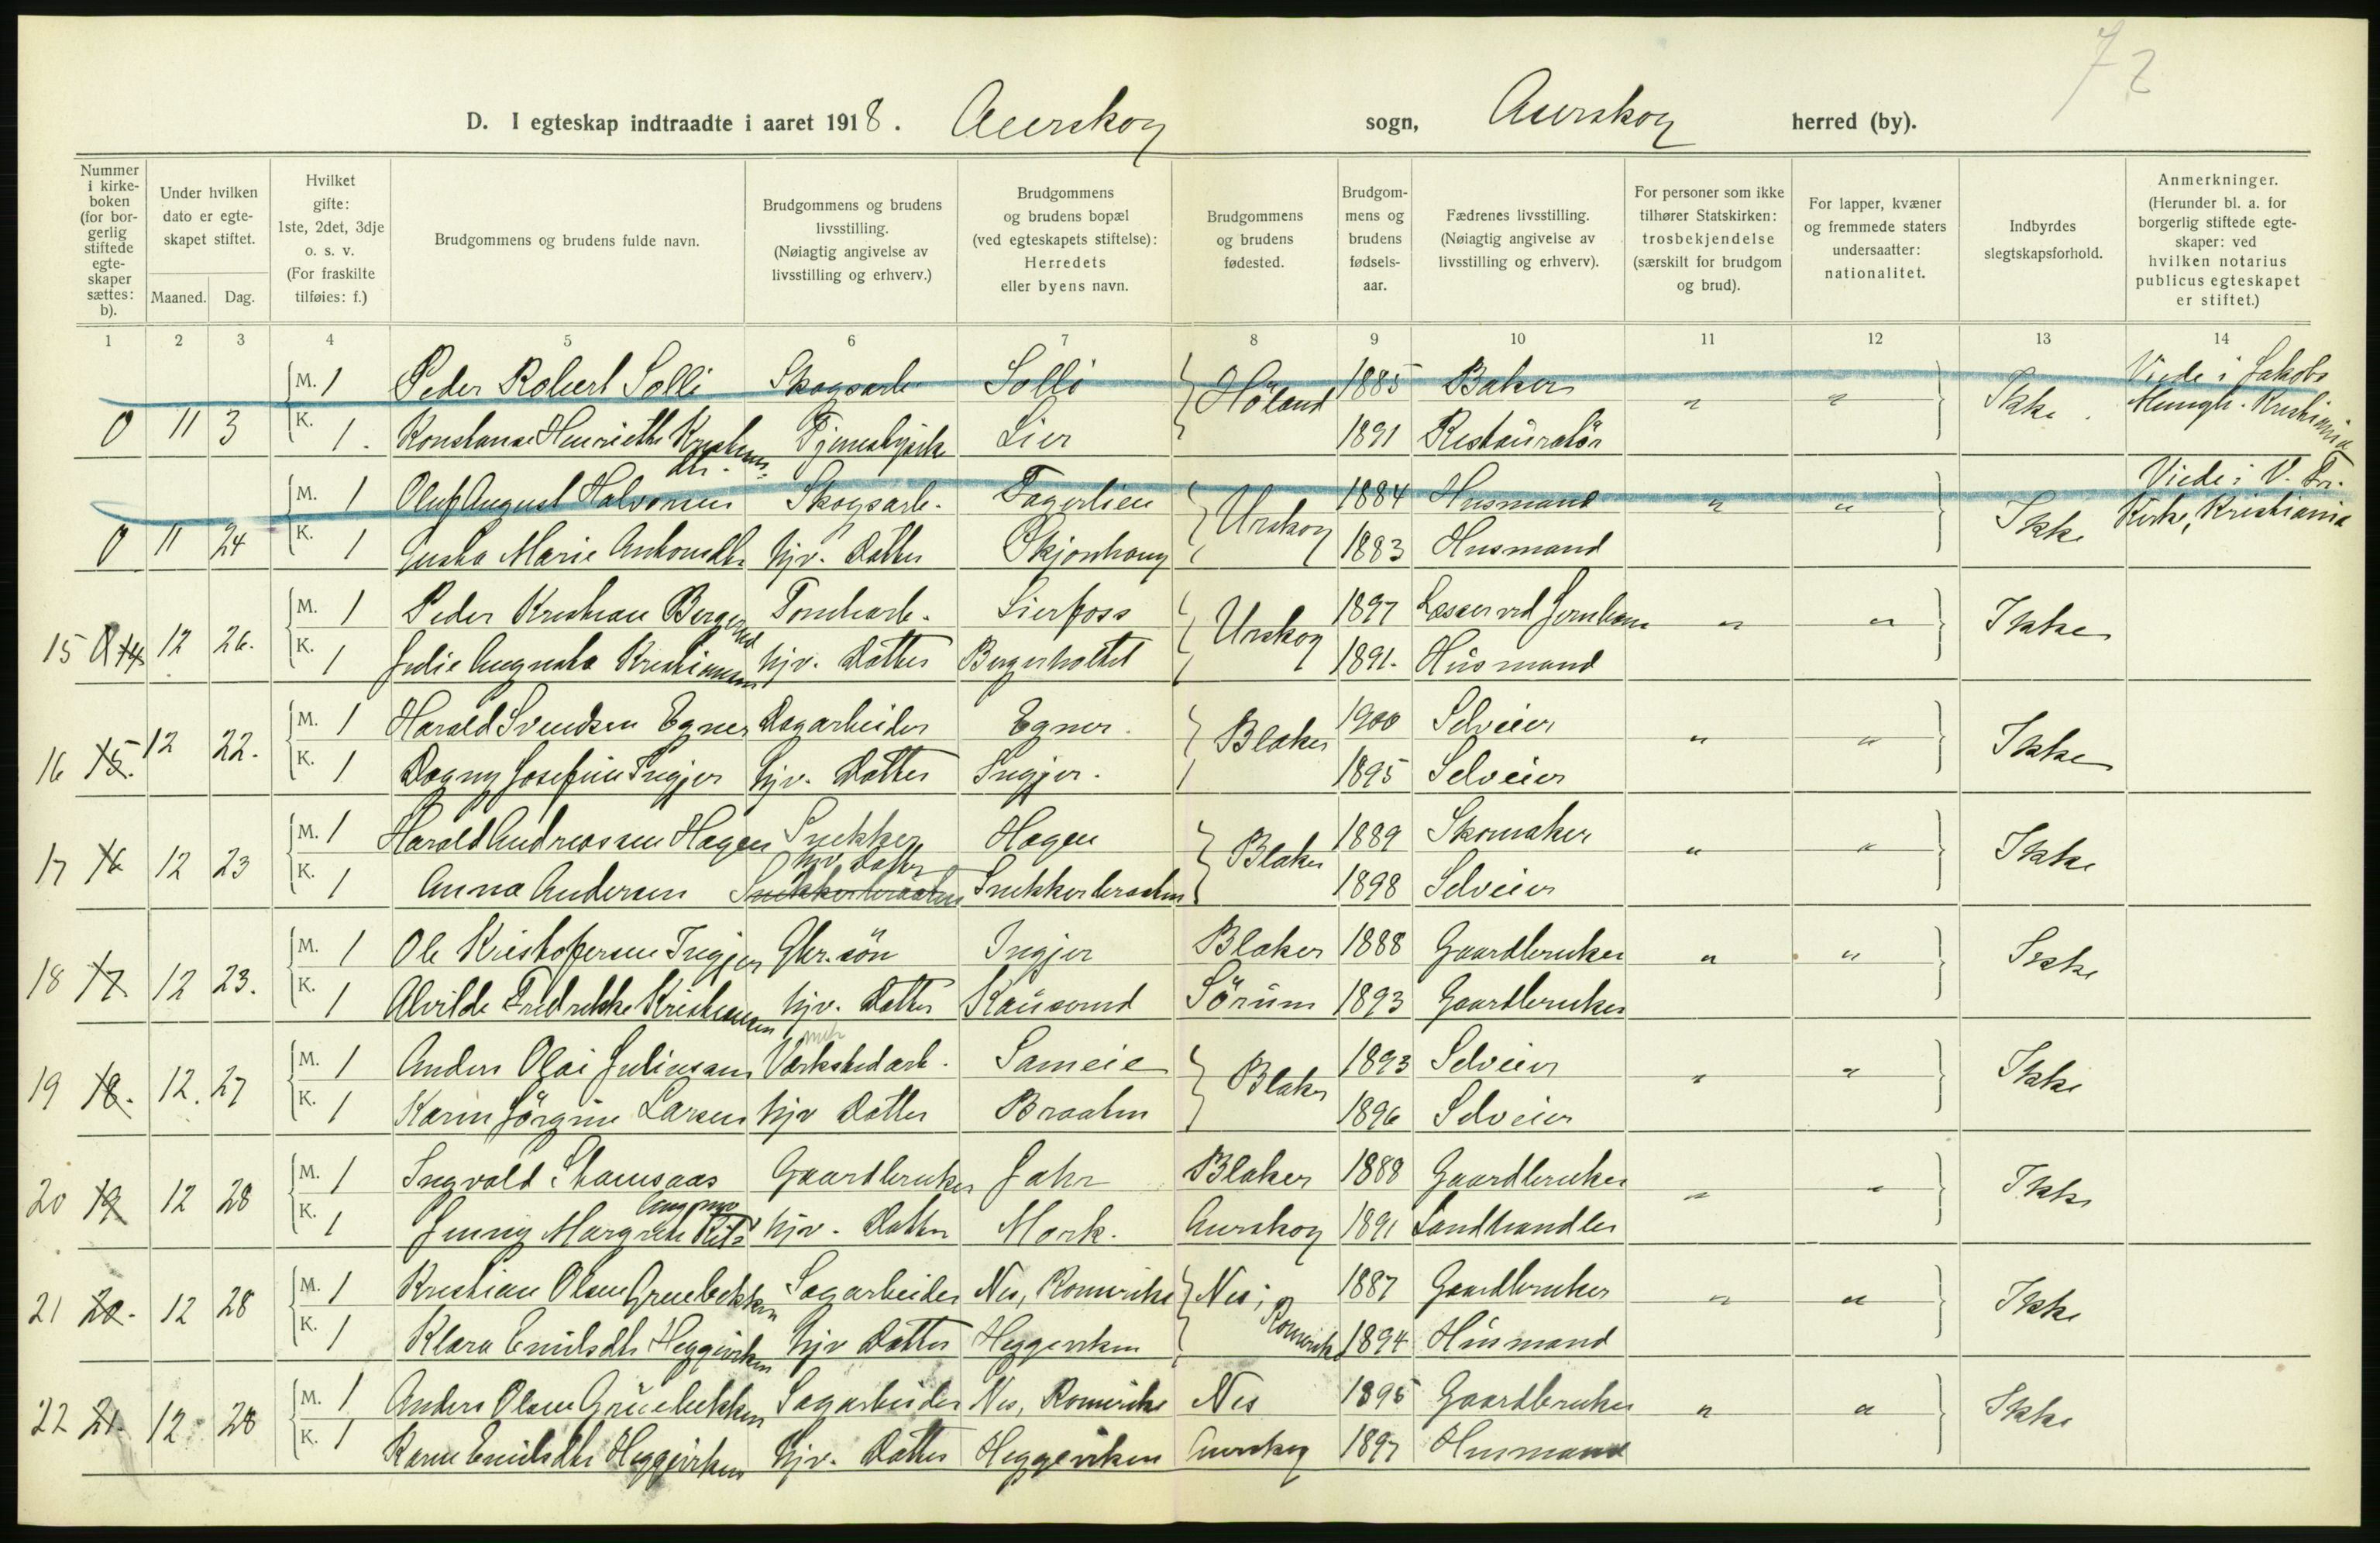 72
D. I egteskap indtraadte i aaret 1918. Aurskog sogn, Aurskog herred (by).
Nummer i kirkeboken (for borgerlig stiftede egteskaper sættes: b).
Under hvilken dato er egteskapet stiftet.
Maaned. Dag.
Hvilket gifte: 1ste, 2det, 3dje o. s. v. (For fraskilte tilføies: f.)
Brudgommens og brudens fulde navn.
Brudgommens og brudens livsstilling. (Nøiagtig angivelse av livsstilling og erhverv.)
Brudgommens og brudens bopæl (ved egteskapets stiftelse): Herredets eller byens navn.
Brudgommens og brudens fødested.
Brudgommens og brudens fødselsaar.
Fædrenes livsstilling. (Nøiagtig angivelse av livsstilling og erhverv).
For personer som ikke tilhører Statskirken: trosbekjendelse (særskilt for brudgom og brud).
For lapper, kvæner og fremmede staters undersaatter: nationalitet.
Indbyrdes slegtskapsforhold.
Anmerkninger. (Herunder bl. a. for borgerlig stiftede egteskaper: ved hvilken notarius publicus egteskapet er stiftet.)
1 2 3 4 5 6 7 8 9 10 11 12 13 14
M. 1 Peder Robert Solli Skogsarb. Solli Höland 1885 Baker " " Ikke. Viede i Jakobs
0 11 3 K. 1. Konstanse Henriette Kristiansdtr. Tjenestepike Lier 1891 Restauratör Menigh. Kristiania
M. 1 Oluf August Halvorsen Skogsarb. Fagerlien Urskog 1884 Husmand " " Ikke Viede i V. Fr.
0 11 24 K. 1 Gusta Marie Antonsdtr. hjv. Datter Skjönhaug 1883 Husmand Kirke, Kristiania
15 14 12 26. M. 1 Peder Kristian Bergerud Tomtearb. Lierfoss Urskog 1897 Læsser ved Jernbane " " Ikke
K. 1 Julie Augusta Kristiansen hjv. Datter Bergerholtet 1891. Husmand
16 15. 12 22. M. 1 Harald Svendsen Egner Dagarbeider Egner. Blaker 1900 Selveier " " Ikke
K. 1 Dagny Josefine Ingjer hjv. Datter Ingjer. 1895 Selveier
17 16 12 23 M. 1 Harald Andreassen Hagen Snekker Hagen Blaker 1889 Skomaker " " Ikke
K. 1 Anna Andersen Snekkerbraaten hjv. Datter Snekkerbraaten 1898 Selveier
18 17 12 23. M. 1 Ole Kristoffersen Ingjer Gbr. sön Ingjer Blaker 1888 Gaardbruker " " Ikke
K. 1 Alvilde Fredrikke Kristiansen hjv. Datter Kausrud Sörum 1893 Gaardbruker
19 18. 12. 27 M. 1 Anders Olai Juliussen Værkstedarb. Sameie Blaker 1893 Selveier " " Ikke
K. 1 Karen Jörgine Larsen hjv Datter Braaten 1896 Selveier
20 19 12 28 M. 1 Ingvald Stamsaas Gaardbruker Jahr Blaker 1888 Gaardbruker " " Ikke
K. 1 Jenny Margrete hjv. Datter Mork. Aurskog 1891 Landhandler
21 20. 12 28 M. 1 Kristian Olsen Gruebekken Sagarbeider Nes, Romerike Nes, Romerike 1887 Gaardbruker " " Ikke
K. 1 Klara Emilsdtr Heggeviken hjv Datter Heggeviken 1894 Husmand
22 21. 12 28 M. 1 Anders Olsen Gruebekken Sagarbeider Nes, Romerike Nes 1895 Gaardbruker " " Ikke
K. 1 Karen Emilsdtr Heggeviken hjv. Datter Heggeviken Aurskog 1897 Husmand